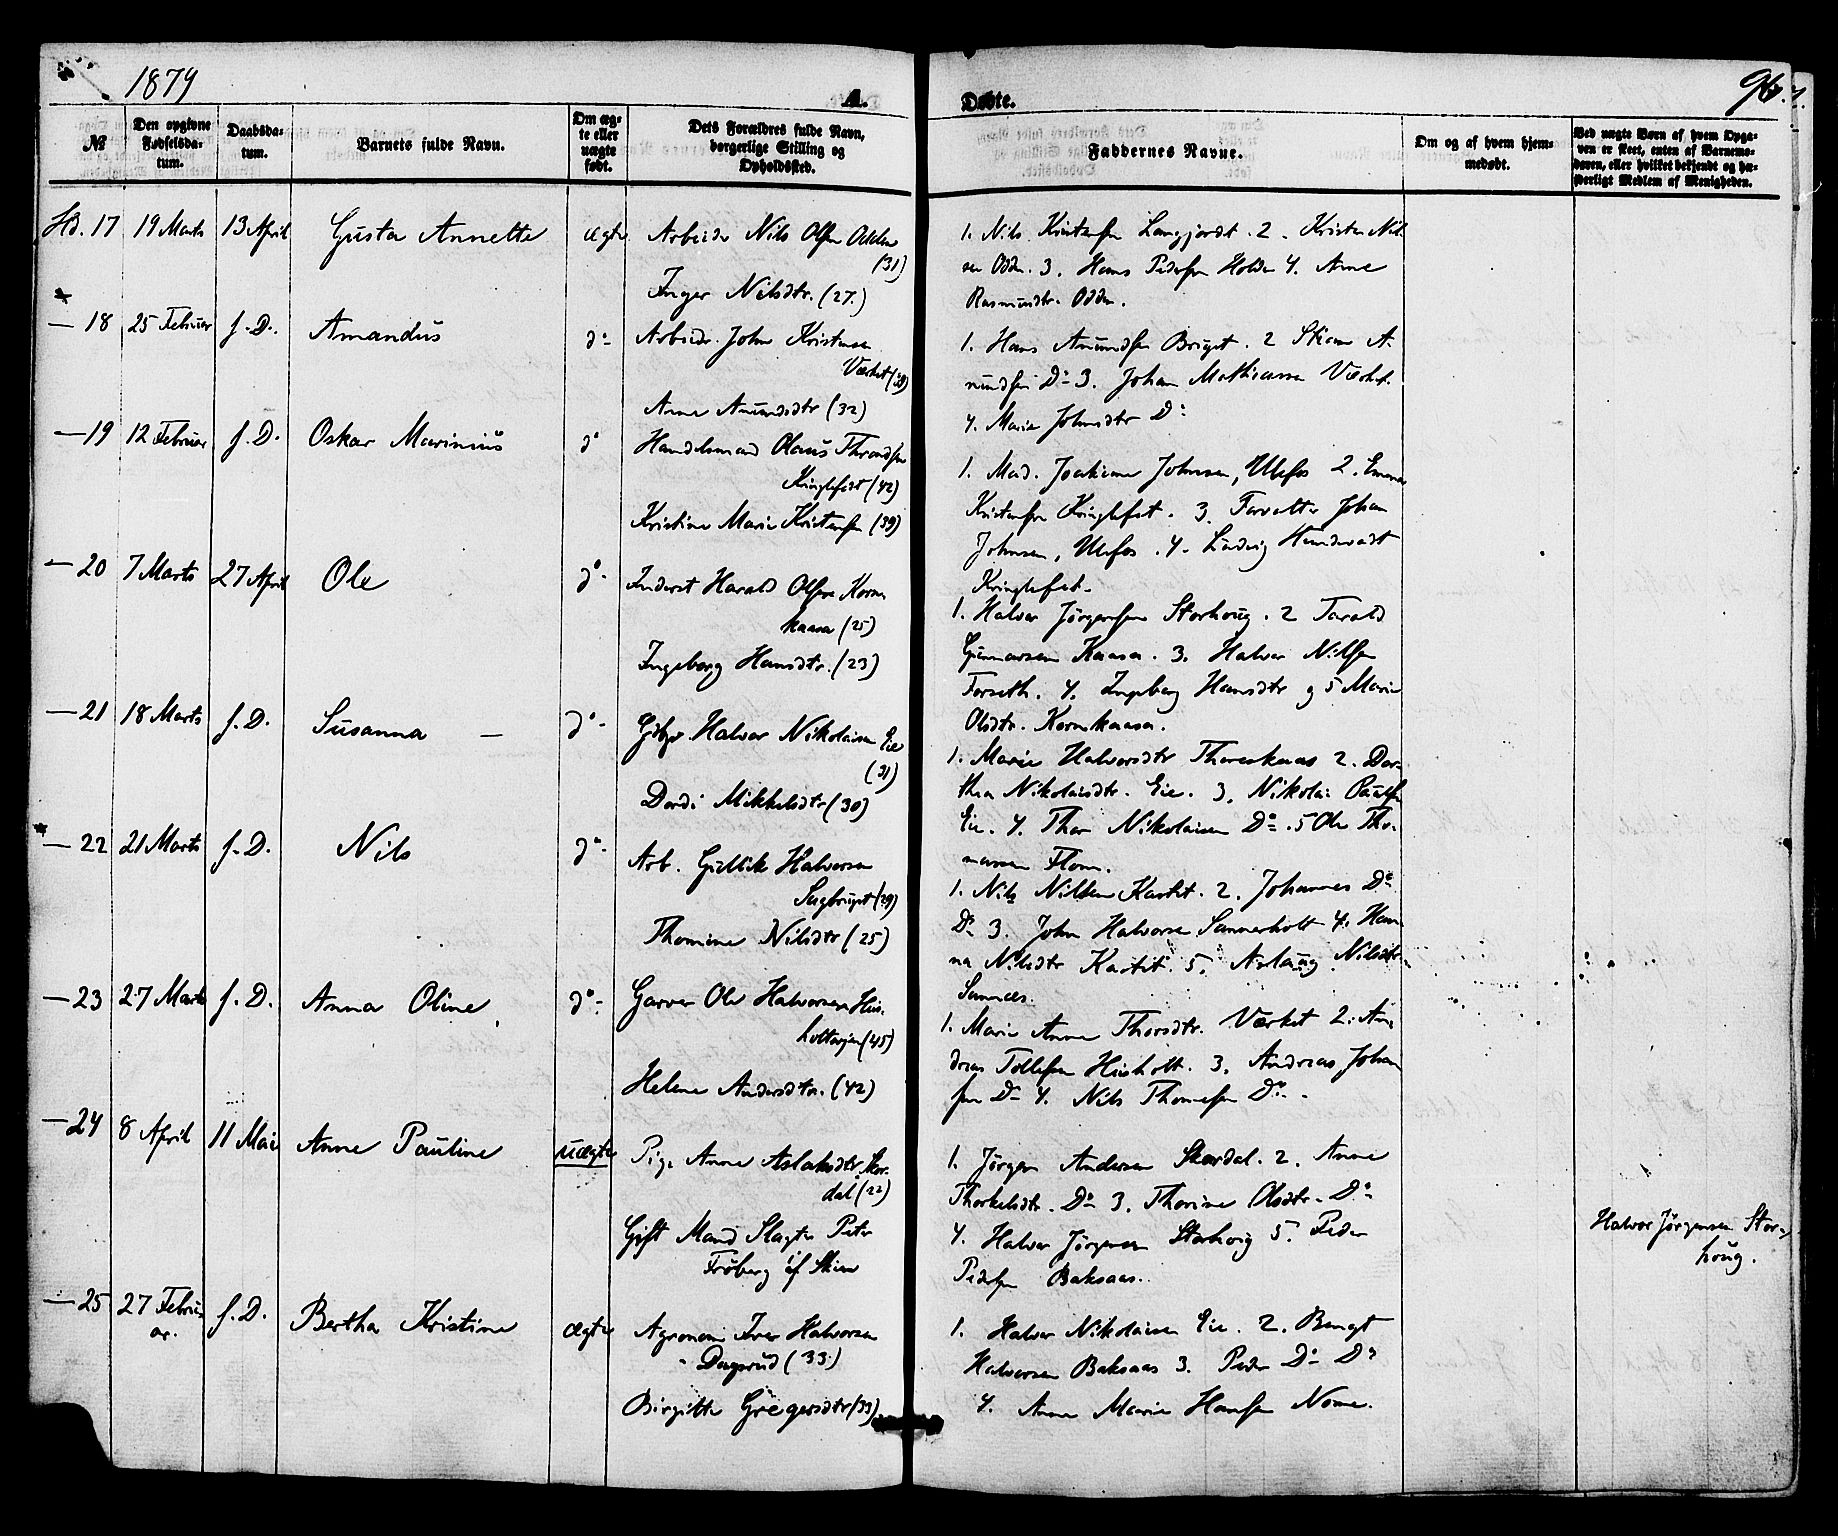 1879
A.
Døbte.
96.
№
Den opgivne Fødselsdatum.
Daabsdatum.
Barnets fulde Navn.
Om ægte eller uægte født.
Dets Forældres fulde Navn, borgerlige Stilling og Opholdssted.
Faddernes Navne.
Om og af hvem hjemmedøbt.
Ved uægte Børn af hvem Opgaven er skeet, enten af Barnemoderen, eller hvilket bekjendt og hæderligt Medlem af Menigheden.
17 19 Marts 13 April Gusta Annette ægte Arbeider Nils Olsen Odden
(31)
Inger Nilsdtr. (27.)
1. Nils Kristensen Langjordt. 2. Kristen Nil-
sen Odden. 3. Hans Pedersen Holden 4. Anne
Rasmusdtr. Odden.
— 18 25 Februar f. D. Amandus do Arbeider John Kristensen
Værket
Anne Anundsdtr (32)
1. Hans Anundsen Bruget. 2 A-
nundsen Do 3. Johan Mathiassen Værket.
4. Marie Johnsdtr Do
— 19 12 Februar f. D. Oskar Marinius do Handelsmand Olaus Throndsen
Kringlefet (42)
Kristine Marie Kristensen (39)
1. Mad. Joakime Johnsen, Ulefos 2. Emma
Kristensen Kringlefet. 3. Forvalter Johan
Johnsen, Ulefos. 4. Ludvig Hundevadt
Kringlefet.
— 20 7 Marts 27 April Ole do Inderst Harald Olsen Korne
kaasa (25)
Ingeborg Hansdtr. (23)
1. Halvor Jørgensen Storhoug. 2 Tarald
Gunnarsen Kaasa. 3. Halvor Nilsen
Forseth. 4. Ingeborg Hansdtr og 5 Marie
Olsdtr. Kornekaasa.
— 21 18 Marts f. D. Susanna — do Gbgr. Halvor Nikolaisen Eie
(31)
Dordi Mikkelsdtr (30)
1. Marie Halvorsdtr 2. Dor-
thea Nikolaisdtr. Eie. 3. Nikolai Paulsen
Eie. 4. Thor Nikolaisen Do. 5 Ole Tho-
massen Flom.
— 22 21 Marts f. D. Nils do Arb. Gullik Halvorsen
Sagbruget (29)
Thomine Nilsdtr (25)
1. Nils Nilsen Kastet. 2. Johannes Do
Do 3. John Halvorsen Sannerholt 4. Han
na Nilsdtr Kastet 5. Aslaug Nilsdtr.
Sannes.
— 23 27 Marts f. D. Anna Oline do Garver Ole Halvorsen His-
holtseien (45)
Helene Andersdtr. (42)
1. Marie Anne Thorsdtr. Værket 2. An-
dreas Tollefsen Hisholt. 3. Andreas Johan
sen Do 4. Nils Thomesen Do.
— 24 8 April 11 Mai Anne Pauline uægte Pige Anne Aslaksdtr. Skar-
dal (22)
Gift Mand Slagter Peter
Frøberg af Skien
1. Jørgen Andersen Skardal. 2. Anne
Thorkelsdtr. Do 3. Thorine Olsdtr. Do
4. Halvor Jørgensen Storhoug 5. Peder
Pedersen Baksaas.
Halvor Jørgensen Stor-
houg.
— 25 27 Febru-
ar. f. D. Bertha Kristine ægte Agronom Iver Halvorsen
Dagsrud (33.)
Birgitte Gregersdtr (33)
1. Halvor Nikolaisen Eie. 2. Bengt
Halvorsen Baksaas 3. Peder Do Do
4. Anne Marie Hansen Nome.